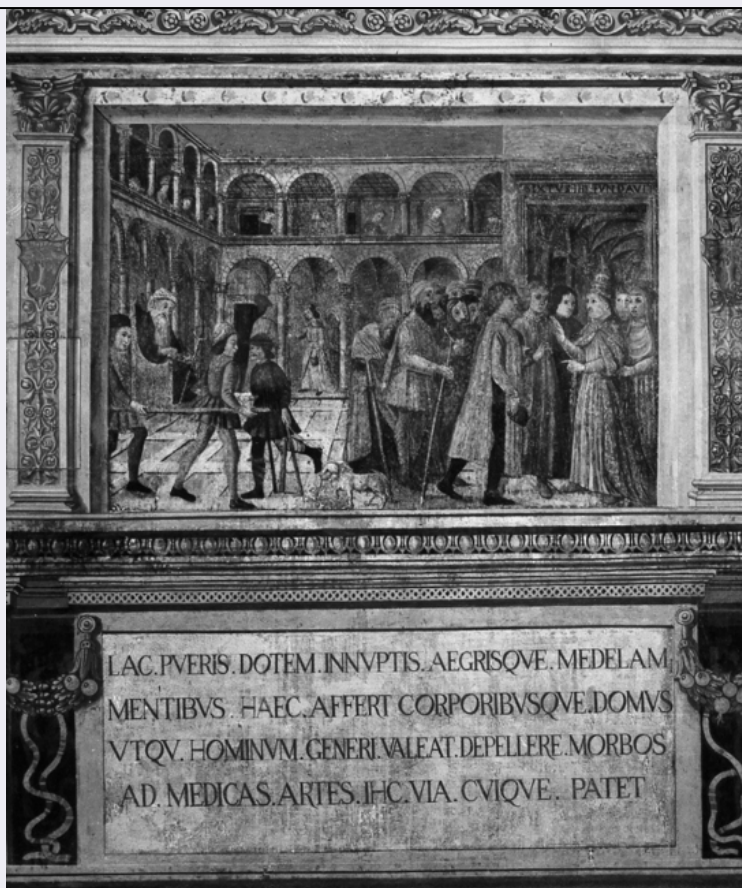 LAC.PVERIS.DOTEM.INNVPTIS.AEGRISQVE.MEDELAM
MENTIBVS.HAEC.AFFERT CORPORIBVSQVE.DOMVS
VTQV.HOMINVM.GENERI.VALEAT.DEPELLERE.MORBOS
AD.MEDICAS.ARTES.IHC.VIA.CVIQVE.PATET